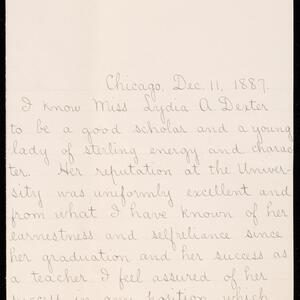 Chicago, Dec. 11, 1887.
I know Miss Lydia A. Dexter
to be a good scholar and a young
lady of sterling energy and charac-
ter. Her reputation at the Univer-
sity was uniformly excellent and
from what I have known of her
earnestness and selfreliance since
her graduation and her success as
a teacher I feel assured of her
success in any position which